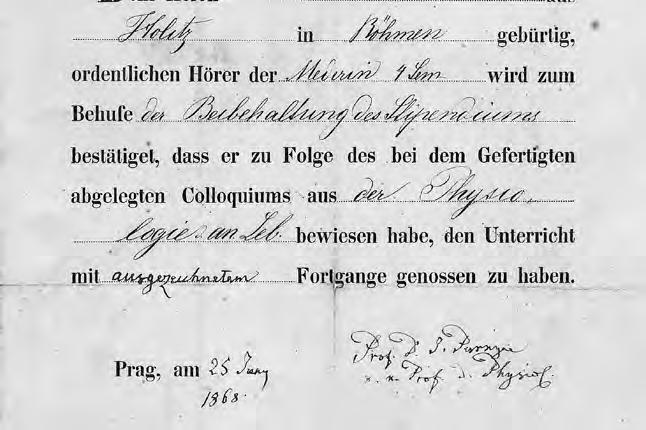 Holitz in Böhmen gebürtig,
ordentlichen Hörer der Medicin 4 Sem wird zum
Behufe der Beibehaltung des Stipendiums
bestätiget, dass er zu Folge des bei dem Gefertigten
abgelegten Colloquiums aus der Physio
logie an Leb. bewiesen habe, den Unterricht
mit ausgezeichnetem Fortgange genossen zu haben.
Prof. D. J.
Prag, am 25 Juny
Prof. d. Physiol.
1868.